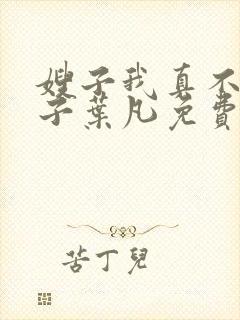 嫂子我真不
子葉凡免費
苦丁兒